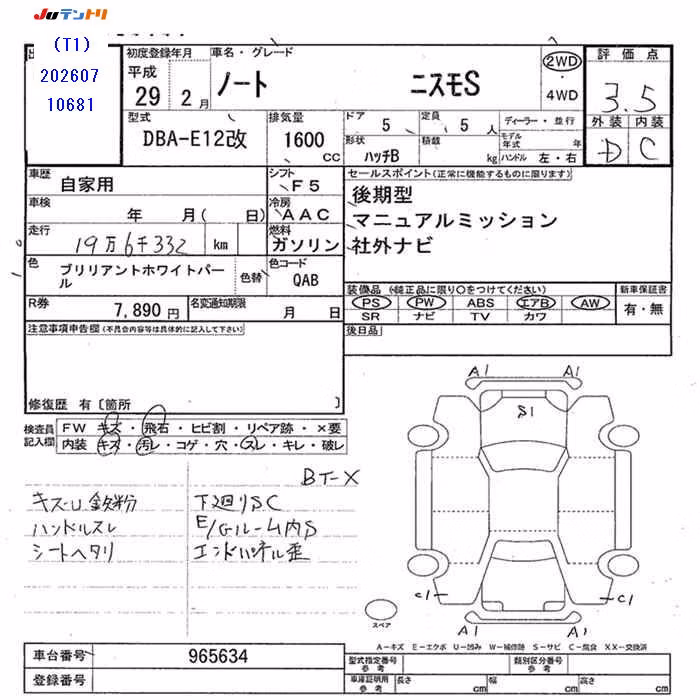 JUテントリ
(T1)
202607
10681
初度登録年月
平成
29 2 月
車名・グレード
ノート ニスモS
2WD
4WD
評価点
3.5
外装 内装
D C
型式
DBA-E12改
排気量
1600
cc
ドア 5
定員 5 人
形状 ハッチB
積載 kg
ディーラー・並行
モデル年式 年
ハンドル 左・右
車歴 自家用
シフト F5
車検 年 月( 日)
冷房 AAC
走行 19万6千332 km
燃料 ガソリン
色 ブリリアントホワイトパール
色替
色コード QAB
R券 7,890 円
名変通知期限 月 日
セールスポイント(正常に機能するものに限ります)
後期型
マニュアルミッション
社外ナビ
装備品 (純正品に限り○をつけてください)
新車保証書
PS PW ABS エアB AW
SR ナビ TV カワ
有・無
後日品
注意事項申告欄(不具合内容等は具体的に記入して下さい)
修復歴 有〔箇所 〕
検査員記入欄
FW キズ・飛石・ヒビ割・リペア跡・×要
内装 キズ・汚レ・コゲ・穴・スレ・キレ・破レ
BT-X
キズ・U 鉄粉
ハンドルスレ
シートヘタリ
下廻りSC
E/Gルーム内S
エンドパネル歪
A1 A1
S1
C1 C1
A1 A1
スペア
A-キズ E-エクボ U-凹み W-補修跡 S-サビ C-腐食 XX-交換済
車台番号 965634
登録番号
型式指定番号 参考
類別区分番号 参考
車庫証明用 参考
長さ cm 幅 cm 高さ cm